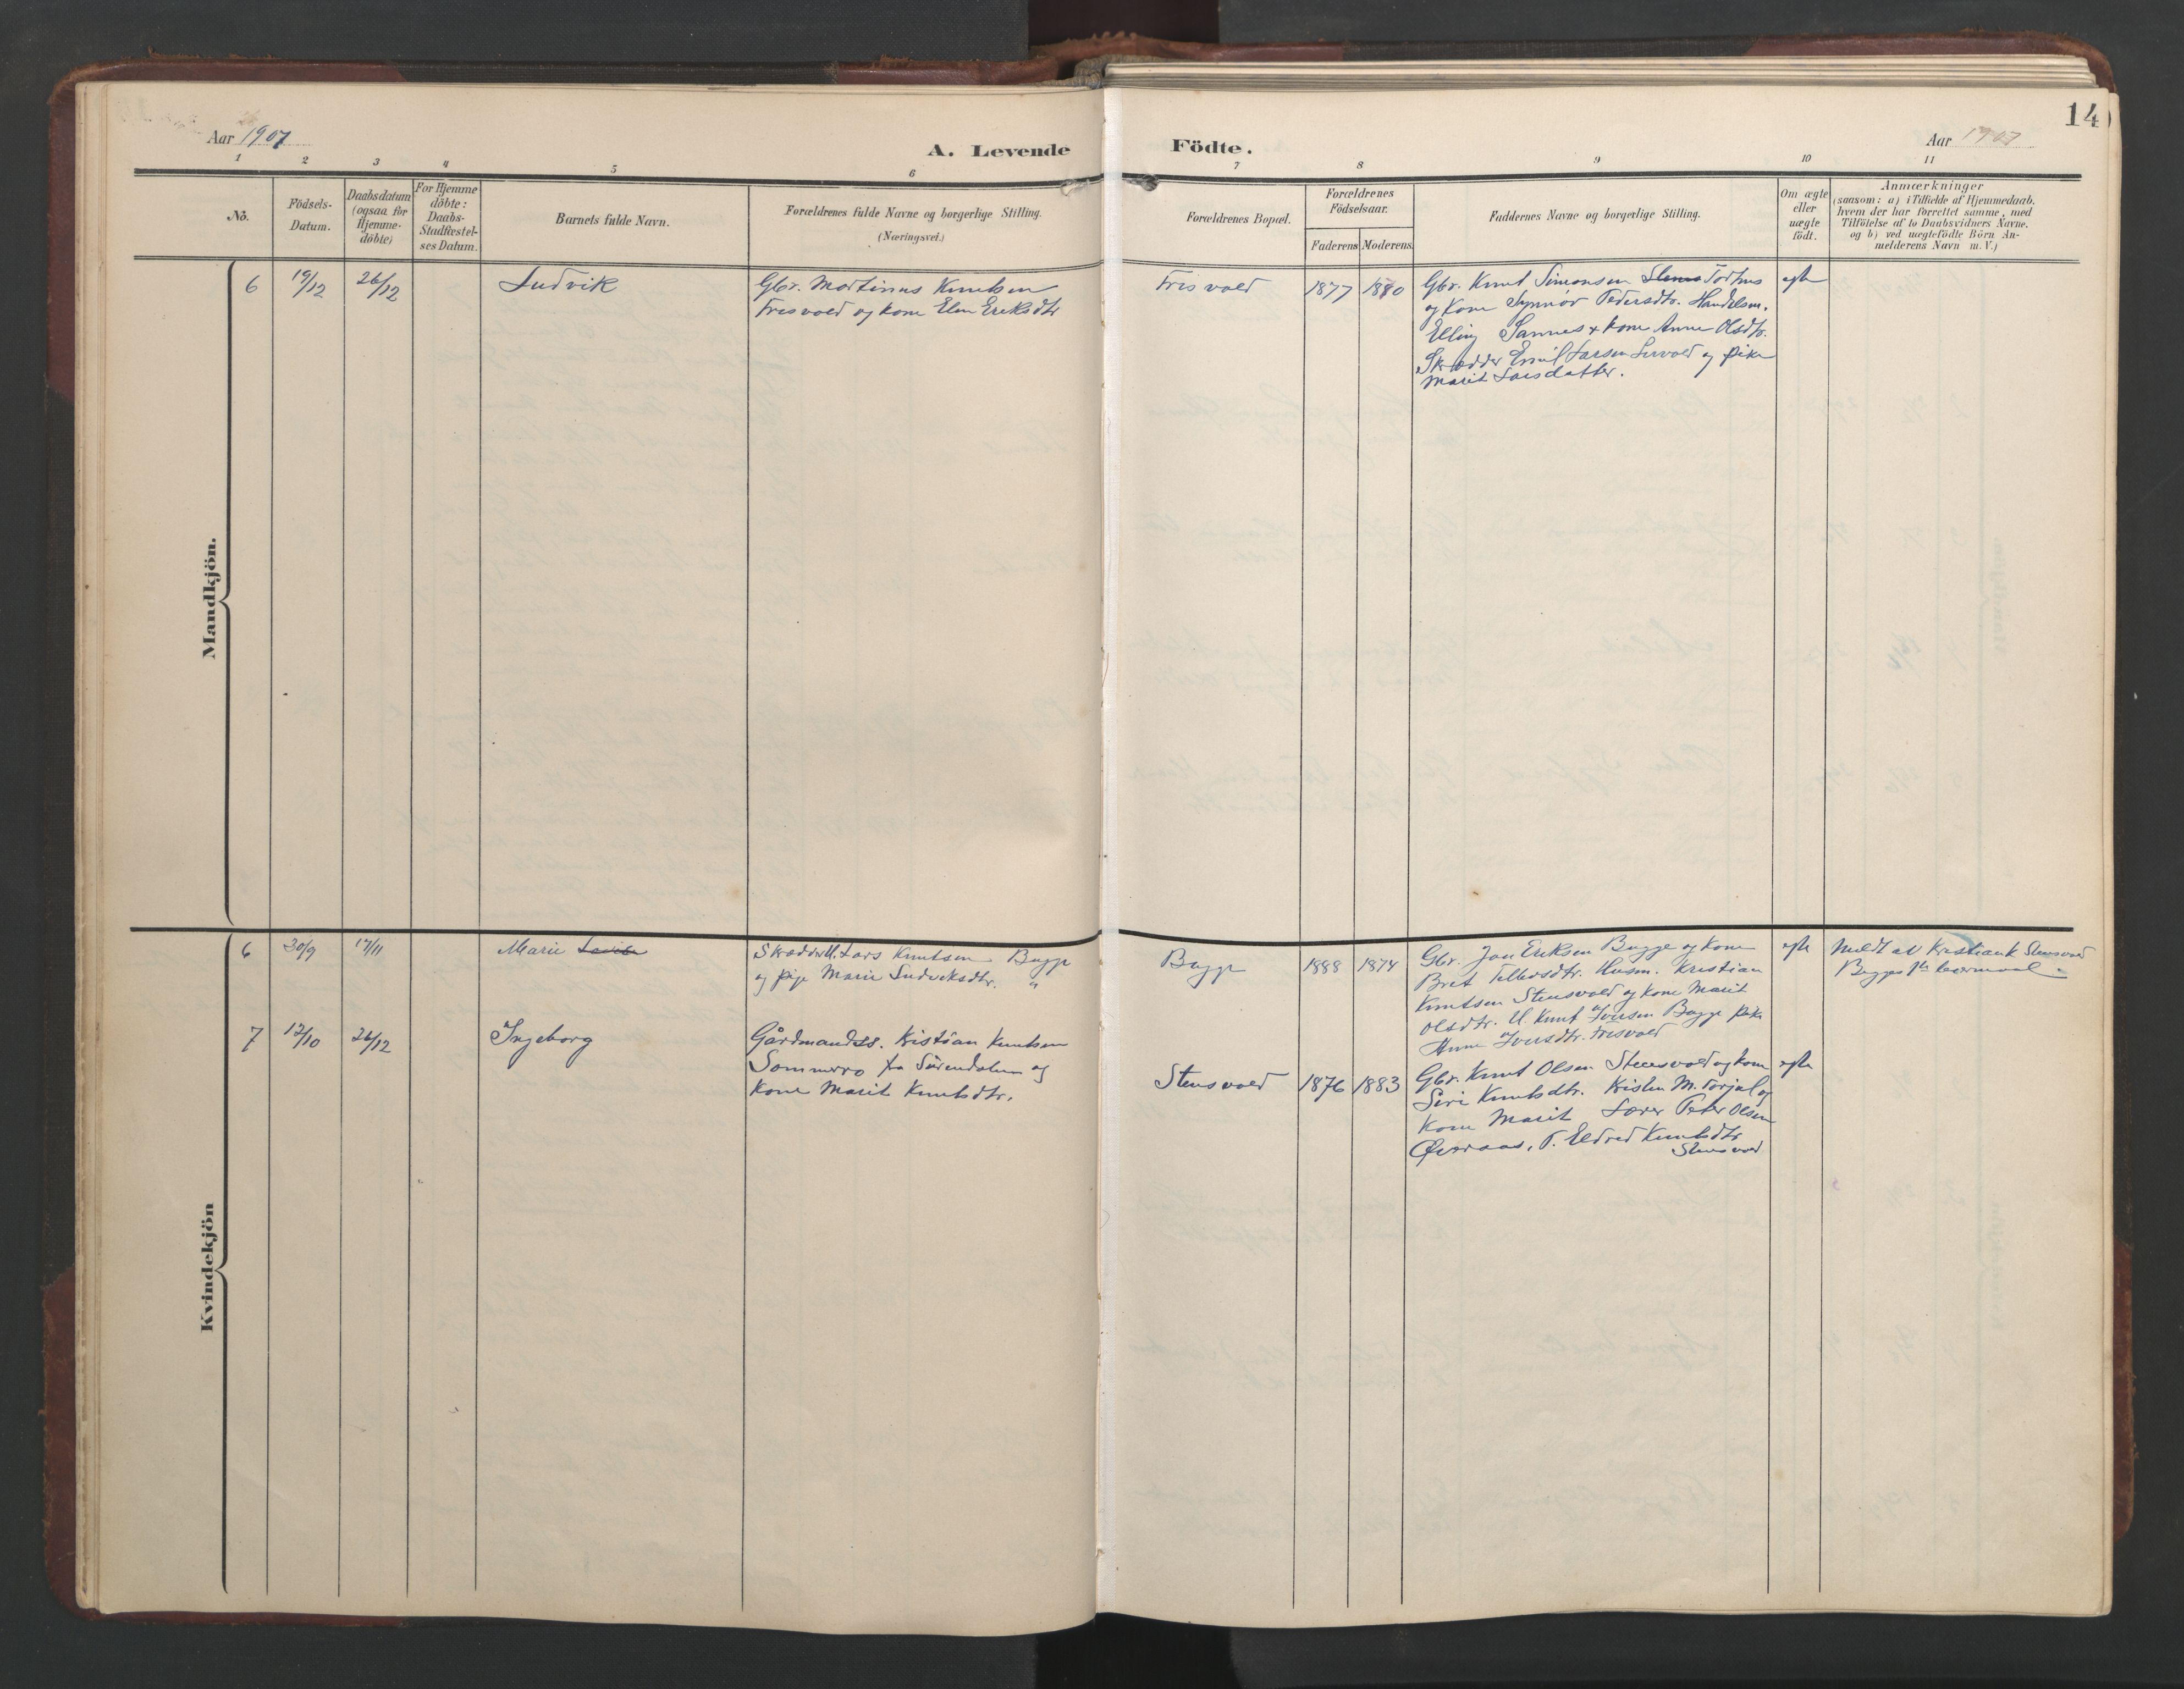 14
Aar 1907
A. Levende Födte.
Aar 1907
1 2 3 4 5 6 7 8 9 10 11
No.
Födsels-
Datum.
Daabsdatum
(ogsaa for
Hjemme-
döbte)
For Hjemme
döbte:
Daabs-
Stadfæstel-
ses Datum.
Barnets fulde Navn.
Forældrenes fulde Navne og borgerlige Stilling.
(Næringsvei.)
Forældrenes Bopæl.
Forældrenes
Födselsaar.
Faderens Moderens
Faddernes Navne og borgerlige Stilling.
Om ægte
eller
uægte
födt.
Anmærkninger
(saasom: a) i Tilfælde af Hjemmedaab,
hvem der har forrettet samme, med
Tilföielse af to Daabsvidners Navne.
og b) ved uægtefödte Börn An-
melderens Navn m. V.)
Mandkjön.
6 19/12 26/12 Ludvik
Gbr. Martinus Knutsen
Frisvold og kone Elen Eriksdtr
Frisvold 1877 1880
Gbr. Knut Simonsen Torhus
og kone Synnör Pedersdtr. Handelsm.
Elling Sannes + kone Anne Olsdtr.
Skrædder Emil Larsen og pike
Marit Larsdatter.
egte
Kvindekjön
6 30/9 17/11 Marie
Skrædder U. Lars Knutsen Bugge
og pige Marie Ludviksdtr. "
Bugge 1888 1874
Gbr. Jon Eriksen Bugge og kone
Bret Tellefsdtr. Husm. Kristian
Knutsen Stensvold og kone Marit
Olsdtr. U. Knut Iversen Bugge pike
Anne Iversdtr. Frisvold
egte
Meldt av Kristian K Stensvold
Bugges 1ste leiermaal
7 12/10 26/12 Ingeborg
Gårdmandss. Kristian Knutsen
Sommerro fra Surendalen og
kone Marit Knutsdtr.
Stensvold 1876 1883
Gbr. Knut Olsen Steensvold og kone
Siri Knutsdtr. Kristen M. Torjul og
kone Marit Lærer Peter Olsen
Øveraas, P. Eldrid Knutsdtr
Stensvold
egte